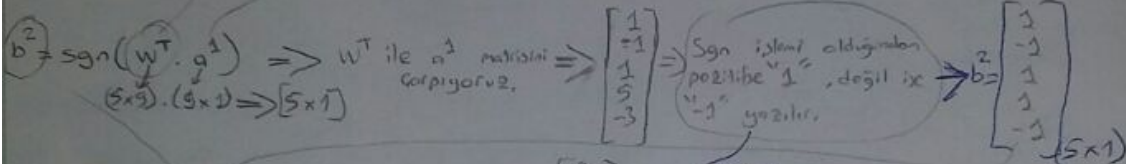 b² = sgn(Wᵀ . a¹) => Wᵀ ile a¹ matrisini çarpıyoruz. => [1 -1 1 5 -3] => Sgn işlemi olduğundan pozitibe "1", değil ise "-1" yazılır. → b² = [1 -1 1 1 -1] (5x1)
(5x9).(9x1) => [5x1]